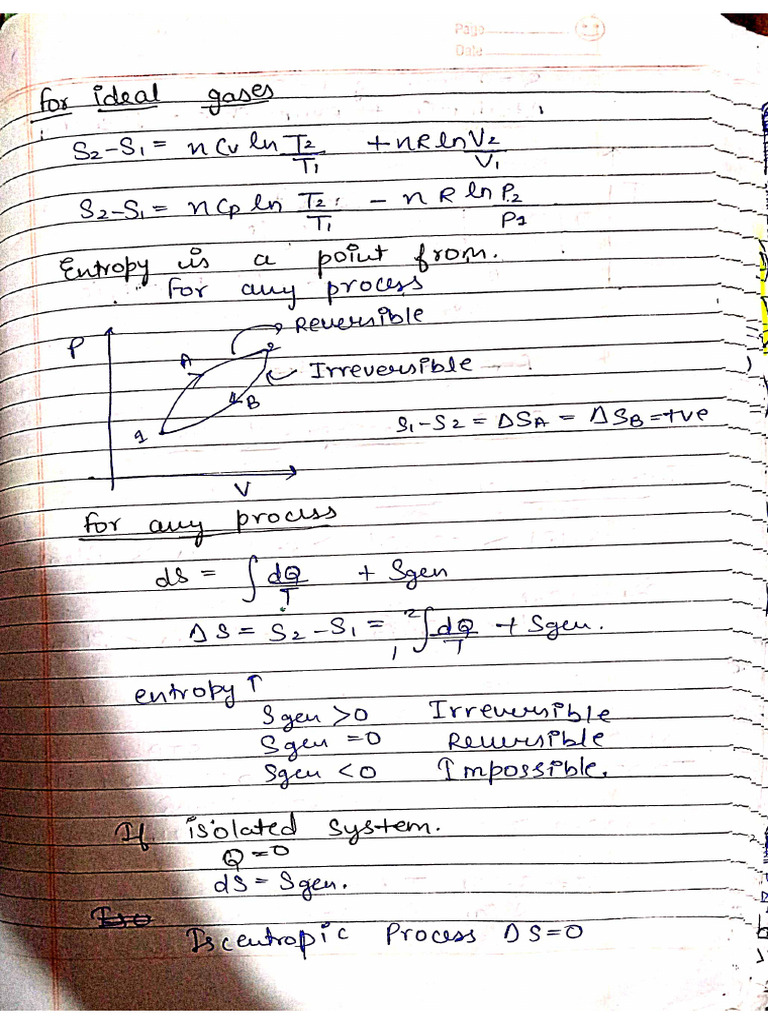 Page
Date
for ideal gases
S2-S1 = nCv ln T2/T1 + nR ln V2/V1
S2-S1 = nCp ln T2/T1 - nR ln P2/P1
Entropy is a point from.
for any process
Reversible
P
A
2
Irreversible
B
1
S1-S2 = ΔSA = ΔSB = +ve
V
for any process
ds = ∫ dQ/T + Sgen
ΔS = S2-S1 = 1∫2 dQ/T + Sgen.
entropy ↑
Sgen >0 Irreversible
Sgen =0 Reversible
Sgen <0 Impossible.
If isolated system.
Q=0
ds = Sgen.
Iso
Iscentropic Process ΔS=0